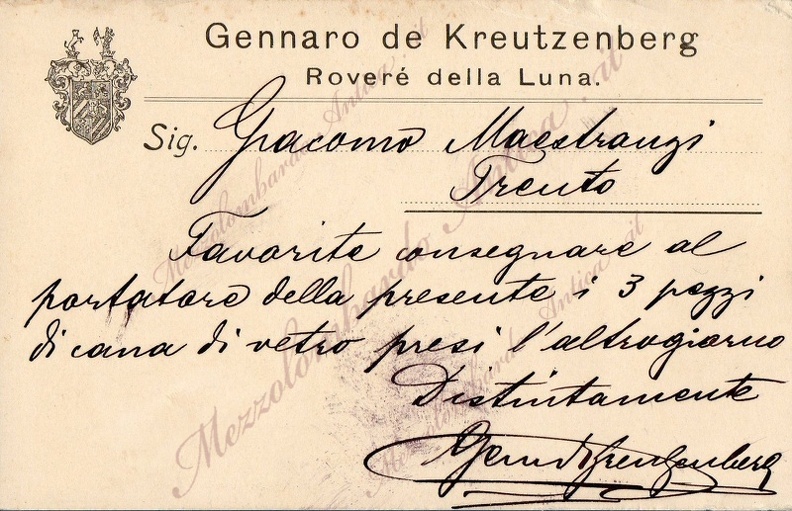 Gennaro de Kreutzenberg
Roveré della Luna.
Sig. Giacomo Maestranzi
Trento
Favorite consegnare al
portatore della presente i 3 pezzi
di cana di vetro presi l'altrogiorno
Distintamente
Genndkreutzenberg
Mezzolombardo Antica.it
Mezzolombardo Antica.it
Mezzolombardo Antica.it